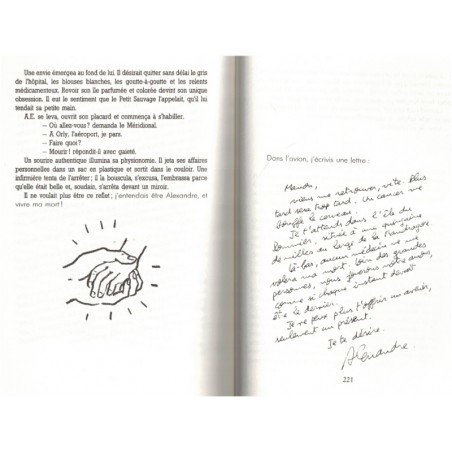 Une envie émergea au fond de lui. Il désirait quitter sans délai le gris
de l'hôpital, les blouses blanches, les goutte-à-goutte et les relents
médicamenteux. Revoir son île parfumée et colorée devint son unique
obsession. Il eut le sentiment que le Petit Sauvage l'appelait, qu'il lui
tendait sa petite main.
A.E. se leva, ouvrit son placard et commença à s'habiller.
– Où allez-vous ? demanda le Méridional.
– A Orly, l'aéroport, je pars.
– Faire quoi ?
– Mourir ! répondit-il avec gaieté.
Un sourire authentique illumina sa physionomie. Il jeta ses affaires
personnelles dans un sac en plastique et sortit dans le couloir. Une
infirmière tenta de l'arrêter ; il la bouscula, s'excusa, l'embrassa parce
qu'elle était belle et, soudain, s'arrêta devant un miroir.
Il ne voulait plus être ce reflet ; j'entendais être Alexandre, et
vivre ma mort !
Dans l'avion, j'écrivis une lettre :
Manon,
viens me retrouver, vite. Plus
tard sera trop tard. Un cancer me
bouffe le cerveau.
Je t'attends dans l'île du
Pommier, située à une quinzaine
de milles au large de la Mandragore.
Là-bas, aucun médecin ne me
volera ma mort. Loin des grandes
personnes, nous jouerons notre amour,
comme si chaque instant devait
être le dernier.
Je ne peux plus t'offrir un avenir,
seulement un présent.
Je te désire.
Alexandre
221